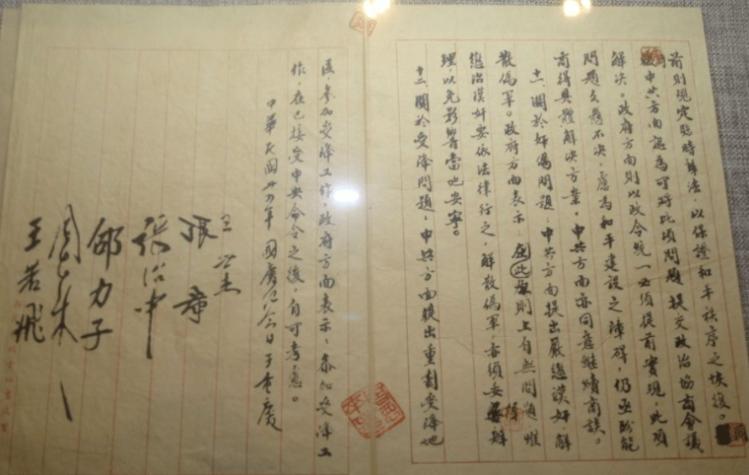 前則規定臨時辦法，以保證和平秩序之恢復。
中共方面認為可將此項問題提交政治協商會議
解決。政府方面則以政令統一必須提前實現，此項
問題久懸不決，慮為和平建設之障碍，仍亟盼能
商得具體解決方案。中共方面亦同意繼續商談。
十一、關於奸偽問題，中共方面提出嚴懲漢奸，解
散偽軍。政府方面表示，在原則上自無問題，惟
懲治漢奸要依法律行之，解散偽軍，亦須妥擇辦
理，以免影響當地安寧。
十二、關於受降問題，中共方面提出重劃受降地
區，參加受降工作，政府方面表示，參加受降工
作，在已接受中央命令之後，自可考慮。
中華民國卅四年國慶紀念日于重慶
王世杰
張羣
張治中
邵力子
周恩來
王若飛